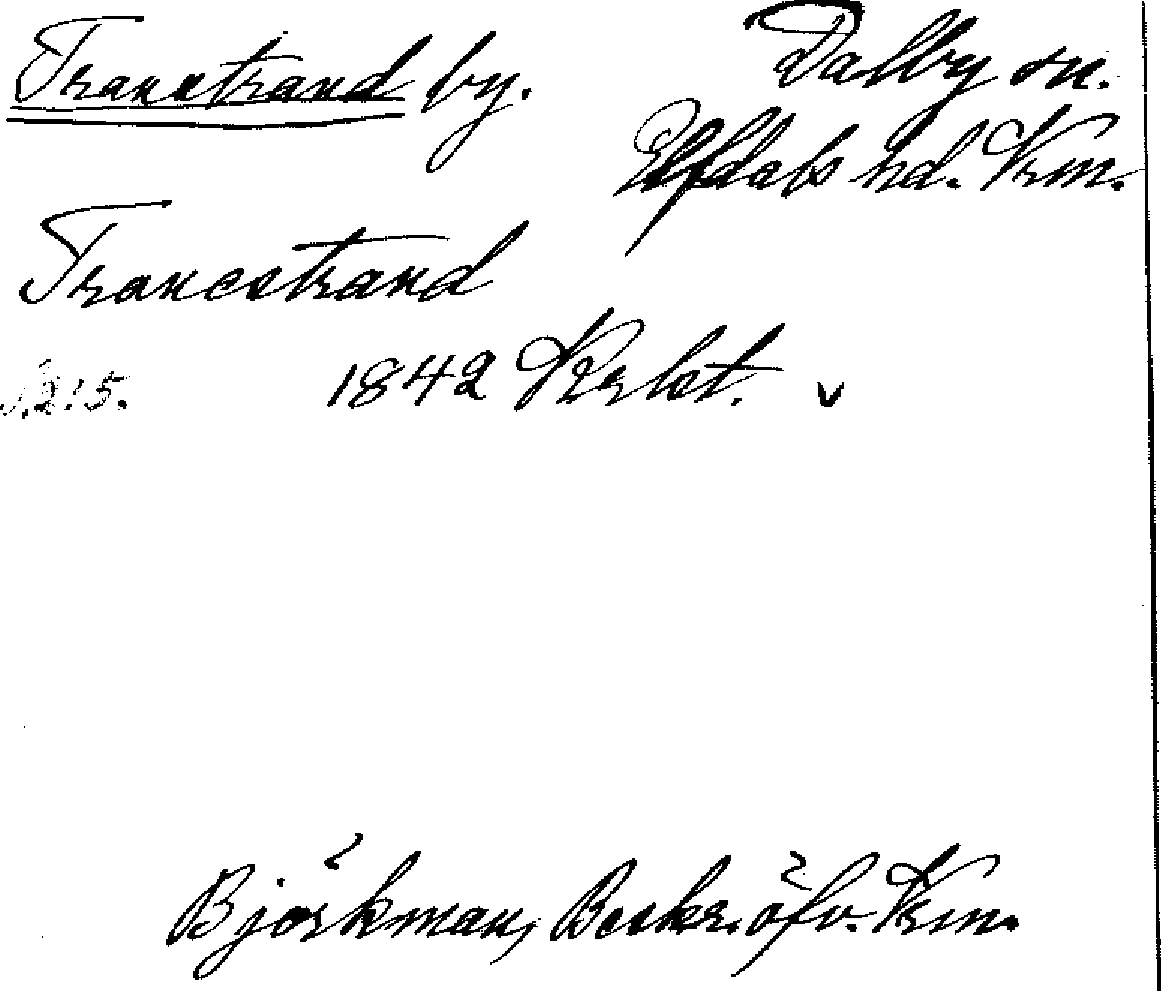 Transtrand by. Dalby sn.
Elfdals hd. Vrm.
Tranestrand
s.215. 1842 Krlst. v
Björkman, Beskr. öfv. Vrm.